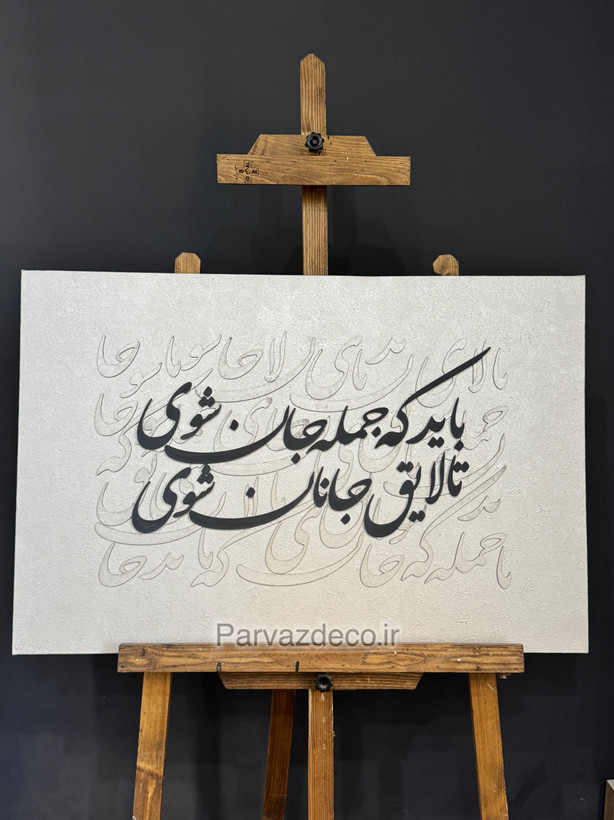 باید که جمله جان شوی
تا لایق جانان شوی
Parvazdeco.ir